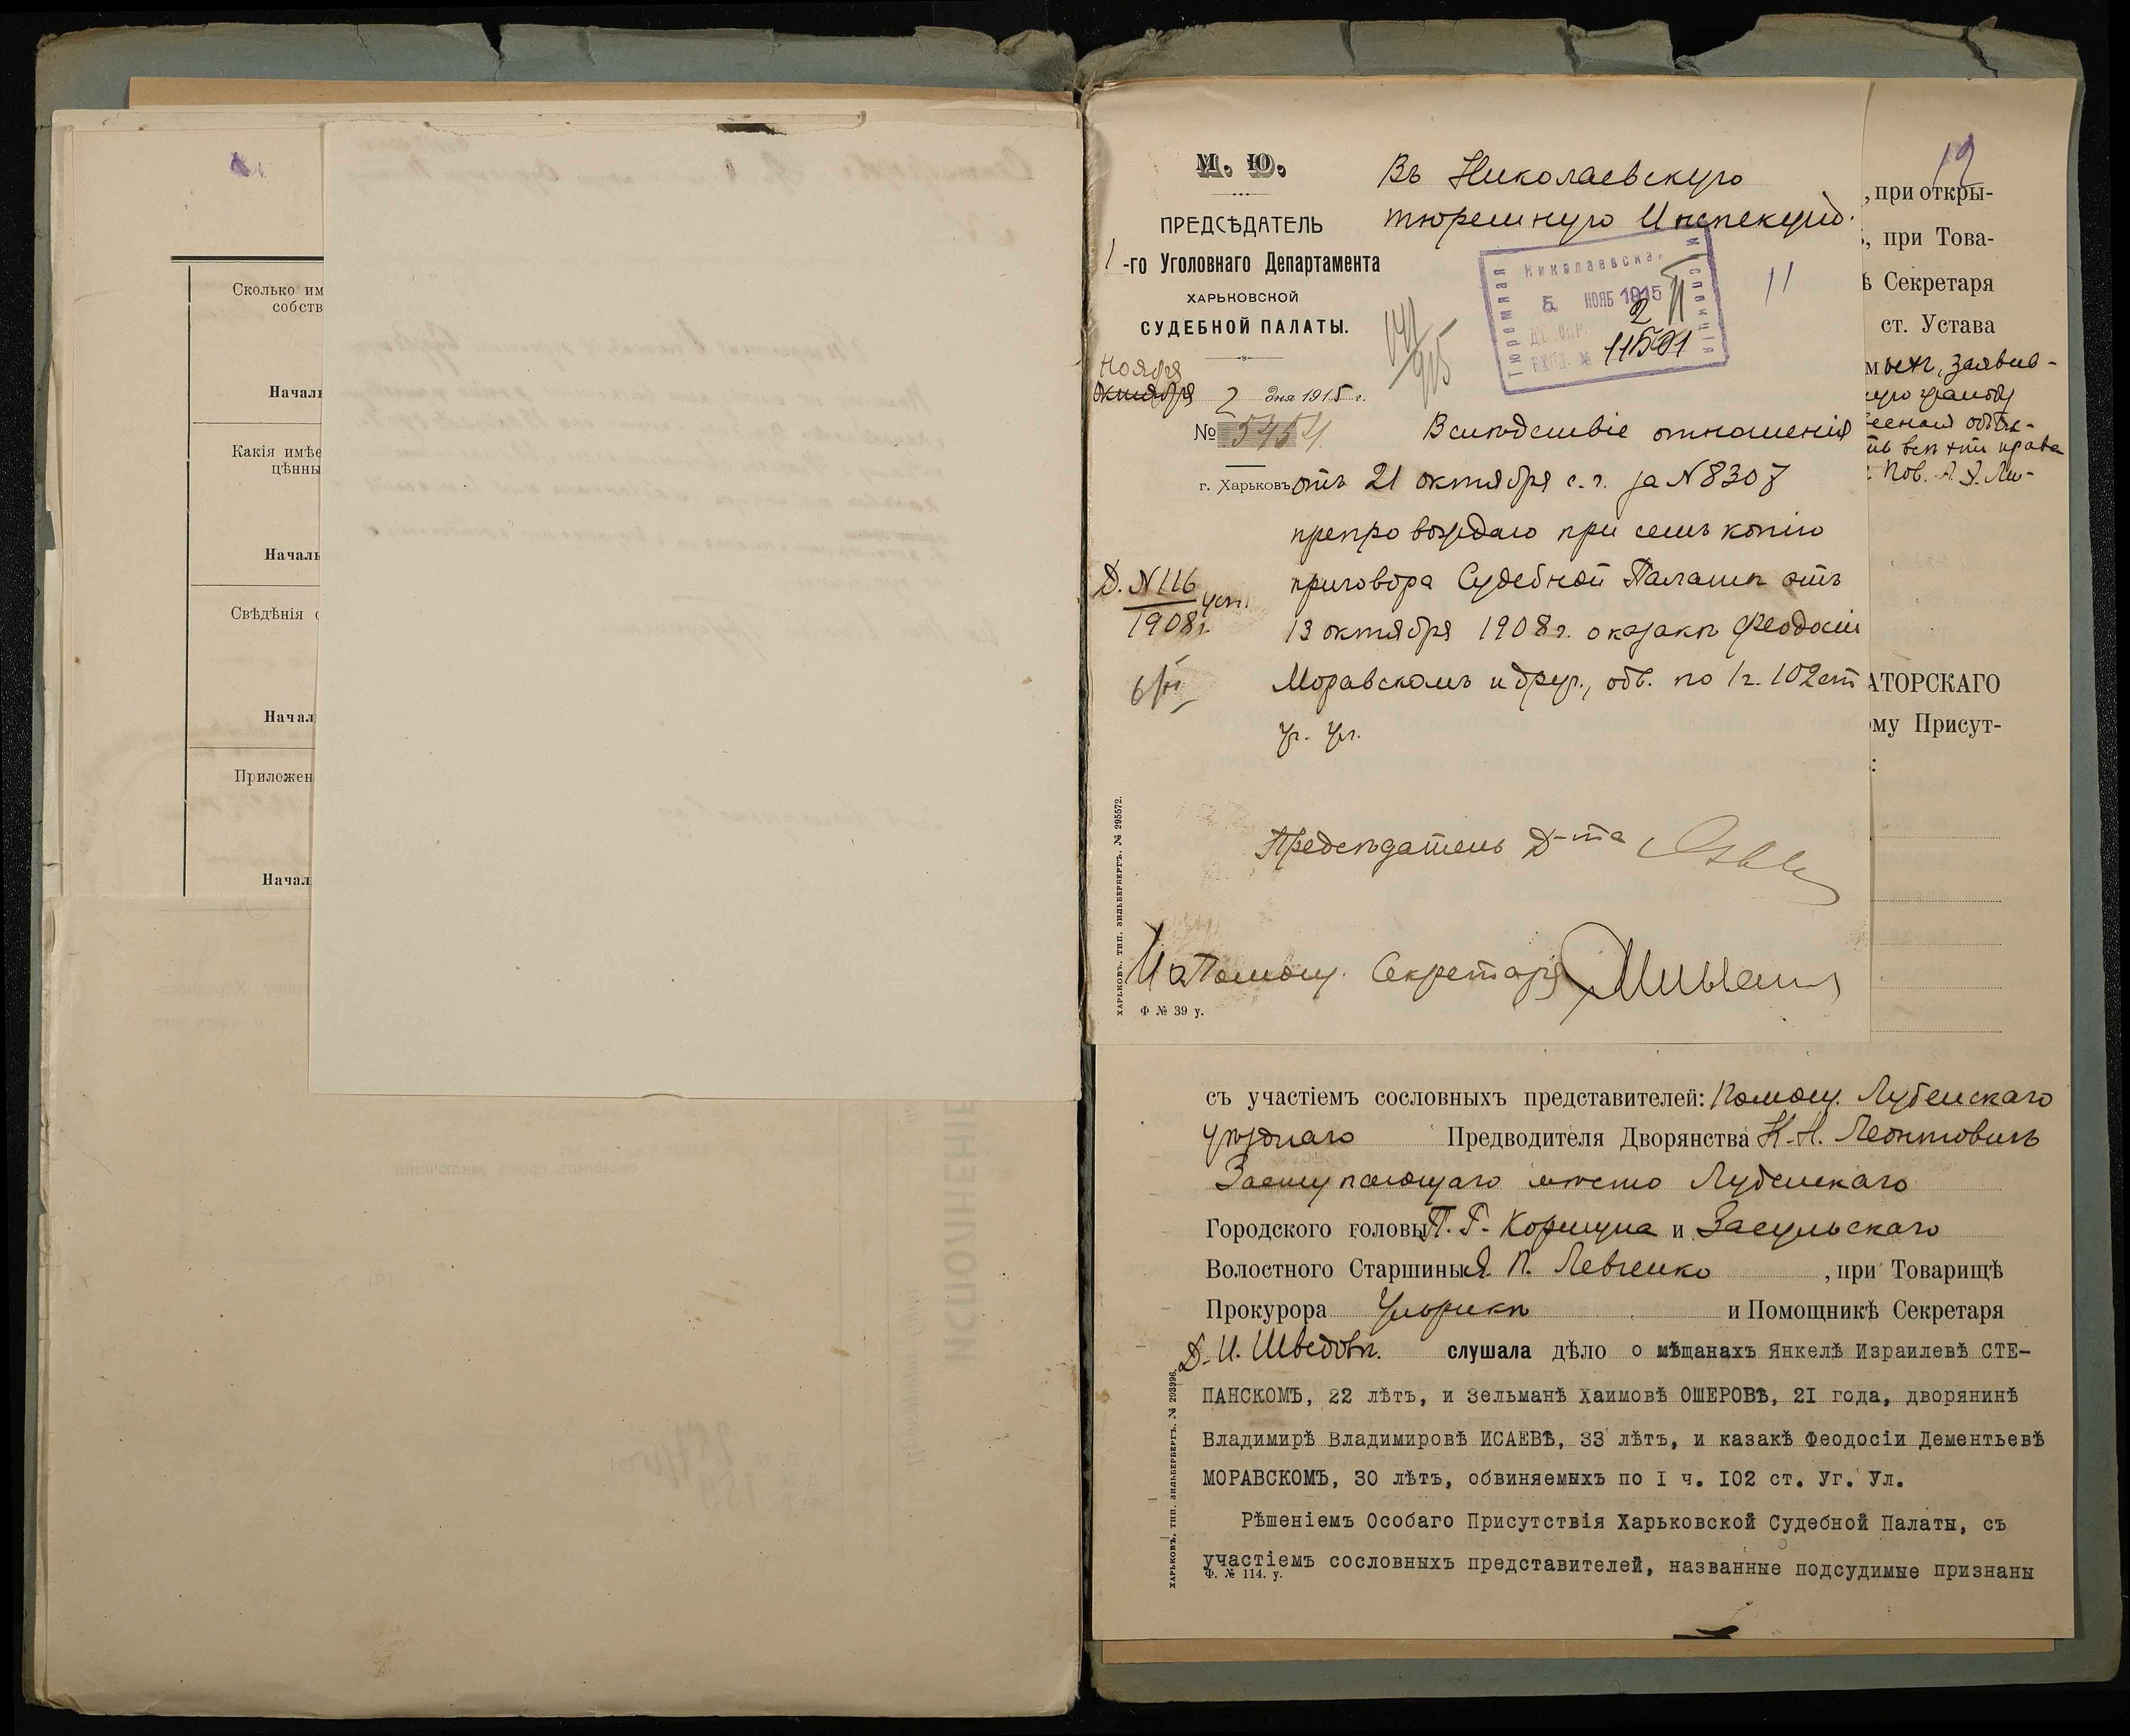 Сколько им
собств
Началь
Какія имѣе
цѣнны
Началь
Свѣдѣнія с
Начал
Приложен
Начал
М. Ю.
ПРЕДСѢДАТЕЛЬ
1-го Уголовнаго Департамента
ХАРЬКОВСКОЙ
СУДЕБНОЙ ПАЛАТЫ.
Ноября
Октября 2 дня 1915 г.
№ 5454
г. Харьковъ.
Д. N 116 уст.
1908 г.
Въ Николаевскую
тюремную Инспекцію.
Николаевская
Тюремная
Инспекція
5 НОЯБ 1915
ВХОД. № 11591
11
Вслѣдствіе отношенія
отъ 21 октября с. г. за N 8307
препровождаю при семъ копію
приговора Судебной Палаты отъ
13 октября 1908 г. о казакѣ Феодосіи
Моравскомъ и друг., обв. по 1 ч. 102 ст
Уг. Ул.
Предсѣдатель Д-та
И. д. Помощ. Секретаря
ХАРЬКОВЪ. ТИП. ЗИЛЬБЕРБЕРГЪ. № 295572.
Ф № 39 у.
12
, при откры-
, при Това-
ѣ Секретаря
ст. Устава
заявив-
права
АТОРСКАГО
ому Присут-
:
съ участіемъ сословныхъ представителей: Помощ. Лубенскаго
уѣзднаго Предводителя Дворянства Н. Н. Леонтовичъ
Заступающаго мѣсто Лубенскаго
Городского головы П. Г. Коршуна и Засульскаго
Волостного Старшины Я. П. Левченко , при Товарищѣ
Прокурора Ульрихѣ и Помощникѣ Секретаря
Д. И. Шведовѣ. слушала дѣло о мѣщанахъ Янкелѣ Израилевѣ СТЕ-
ПАНСКОМЪ, 22 лѣтъ, и Зельманѣ Хаимовѣ ОШЕРОВѢ, 21 года, дворянинѣ
Владимирѣ Владимировѣ ИСАЕВѢ, 33 лѣтъ, и казакѣ Феодосіи Дементьевѣ
МОРАВСКОМЪ, 30 лѣтъ, обвиняемыхъ по I ч. I02 ст. Уг. Ул.
Рѣшеніемъ Особаго Присутствія Харьковской Судебной Палаты, съ
участіемъ сословныхъ представителей, названные подсудимые признаны
Ф. № 114. у.
ХАРЬКОВЪ, ТИП. ЗИЛЬБЕРБЕРГЪ. № 293996.